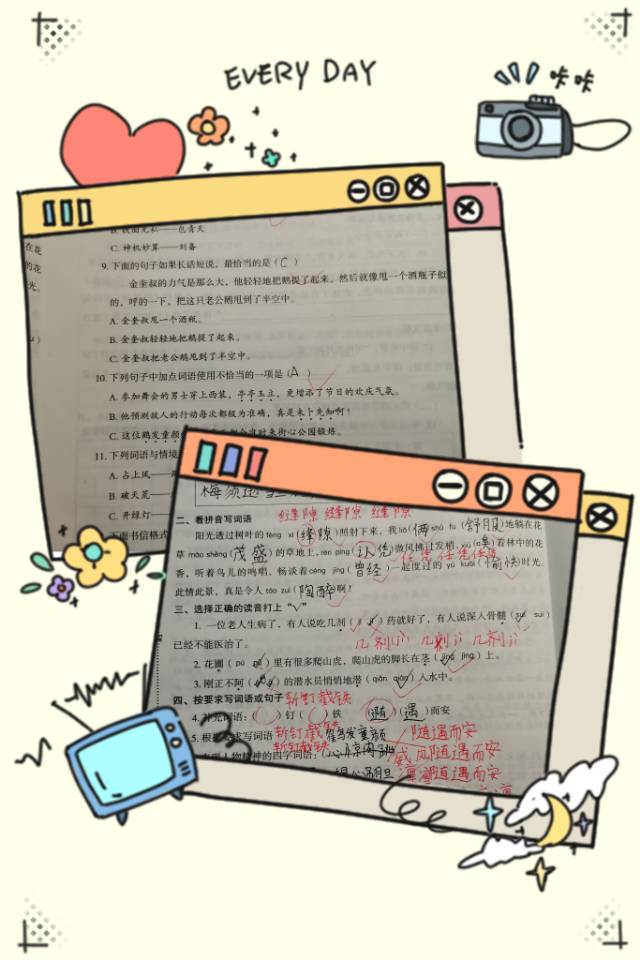 EVERY DAY
咔咔
B. 铁面无私——包青天
C. 神机妙算——刘备
9. 下面的句子如果长话短说，最恰当的是（ C ）
金奎叔的力气是那么大，他轻轻地把鹅提了起来，然后就像甩一个酒瓶子似
的，呼的一下，把这只老公鹅甩到了半空中。
A. 金奎叔甩一个酒瓶。
B. 金奎叔轻轻地把鹅提了起来。
C. 金奎叔把老公鹅甩到了半空中。
10. 下列句子中加点词语使用不恰当的一项是（ A ）
A. 参加舞会的男士穿上西装，亭亭玉立，更增添了节日的欢庆气氛。
B. 他预测敌人的行动每次都极为准确，真是未卜先知啊！
C. 这位鹤发童颜
街心公园锻炼。
11. 下列词语与情境
A. 占上风——
B. 破天荒——
C. 开绿灯——
下面书信格式
在花
的花
光。
二、看拼音写词语
缝隙 缝隙 缝隙
阳光透过树叶的 fèng xì（缝隙）照射下来，我 liǎ（俩）shū fu（舒服）地躺在花
草 mào shèng（茂盛）的草地上，rèn píng（）微风拂过发梢，xiù（嗅）着林中的花
任凭任凭任凭
香，听着鸟儿的鸣唱，畅谈着 céng jīng（曾经）一起度过的 yú kuài（愉快）时光。
此情此景，真是令人 táo zuì（陶醉）啊！
三、选择正确的读音打上“√”
1. 一位老人生病了，有人说吃几剂（）药就好了，有人说深入骨髓（ suǐ suí ）
已经不能医治了。
几剂jì 几剂jì 几剂jì
2. 花圃（ pǔ ）里有很多爬山虎，爬山虎的脚长在茎（ jīng jìng ）上。
3. 刚正不阿（）的潜水员悄悄地潜（ qián qiǎn ）入水中。
四、按要求写词语或句子
斩钉截铁
4. 补充词语：（ ）钉（ ）铁 （随）（遇）而安
斩钉截铁
5. 根据要求写词语
鹤发童颜
随遇而安
斩钉截铁
人物精神的四字词语：（
威风
随遇而安
凛凛
随遇而安